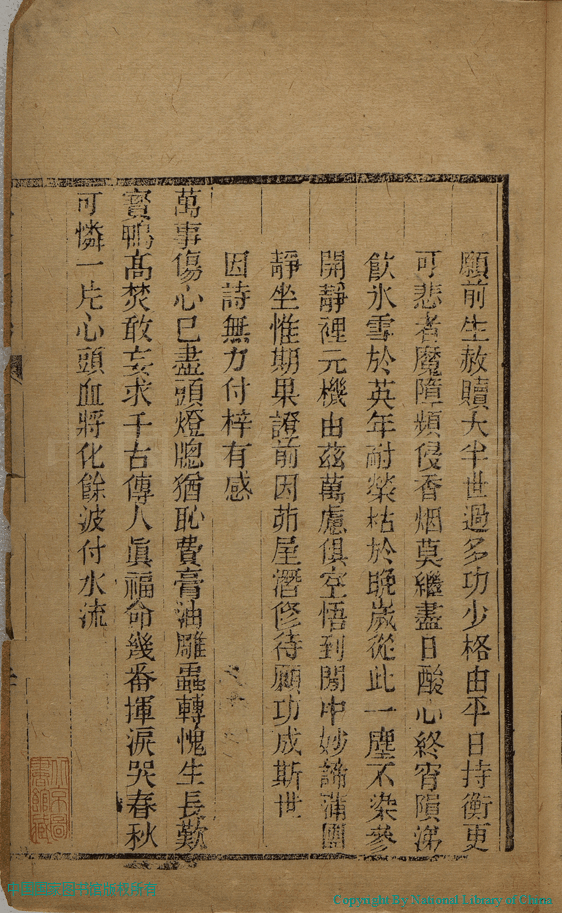 願前生赦贖大半世過多功少格由平日持衡更
可悲者魔障頻侵香烟莫繼盡日酸心終宵隕涕
飲氷雪於英年耐榮枯於晚歲從此一塵不染參
開靜裡元機由茲萬慮俱空悟到閒中妙諦蒲團
靜坐惟期果證前因茆屋潛修待願功成斯世
因詩無力付梓有感
萬事傷心已盡頭燈牕猶恥費膏油雕蟲轉愧生長歎
寳鴨高焚敢妄求千古傳人眞福命幾番揮淚哭春秋
可憐一片心頭血將化餘波付水流
Copyright By National Library of China